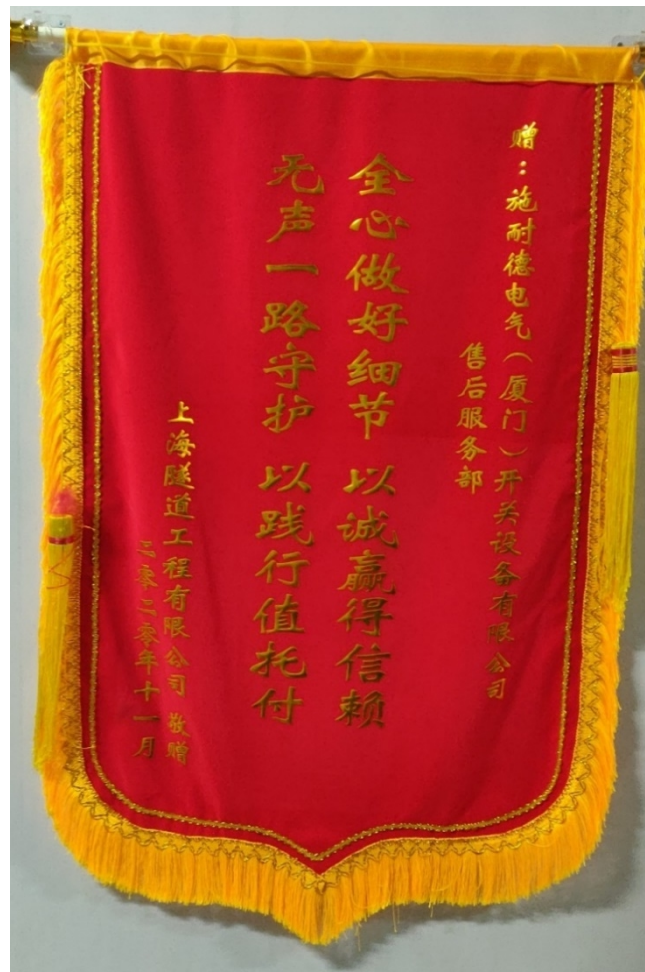 赠：施耐德电气（厦门）开关设备有限公司
售后服务部
全心做好细节 以诚赢得信赖
无声一路守护 以践行值托付
上海隧道工程有限公司 敬赠
二零二零年十一月